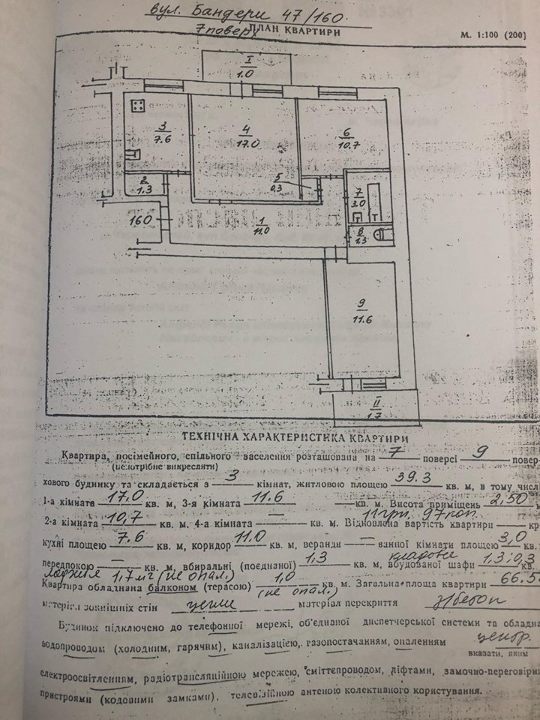 вул. Бандери 47/160.
7 поверх ПЛАН КВАРТИРИ М. 1:100 (200)
I
1.0
3
7.6
4
17.0
6
10.7
2
1.3
5
0,3
7
3.0
160
1
11.0
8
1.3
9
11.6
II
1.7
ТЕХНІЧНА ХАРАКТЕРИСТИКА КВАРТИРИ
Квартира, посімейного, спільного заселення розташована на 7 поверсі 9 повер-
(непотрібне викреслити)
хового будинку та складається з 3 кімнат, житловою площею 39.3 кв. м, в тому числі
1-а кімната 17.0 кв. м, 3-я кімната 11.6 кв. м. Висота приміщень 2,50 м
2-а кімната 10,7 кв. м. 4-а кімната — кв. м. Відновлена вартість квартири 11 грн. 97 коп. кр
кухні площею 7.6 кв. м, коридор 11.0 кв. м, веранди — ванної кімнати площею 3,0 кв.
передпокою — кв. м, вбиральні (поєднаної) 1,3 кв. м, вбудованої шафи 1.3; 0,3 кв.
лоджія 1,7 м2 (не опал.)
Квартира обладнана балконом (терасою) 1,0 (не опал.) кв. м. Загальна площа квартири 66.5
матеріал зовнішніх стін цегла матеріал перекриття з/бетон
Будинок підключено до телефонної мережі, об'єднаної диспетчерської системи та обладна
водопроводом (холодним, гарячим), каналізацією, газопостачанням, опаленням центр.
вказати, яким
електроосвітленням, радіотрансляційною мережею, сміттєпроводом, ліфтами, замочно-переговорн
пристроями (кодовими замками), телевізійною антеною колективного користування.